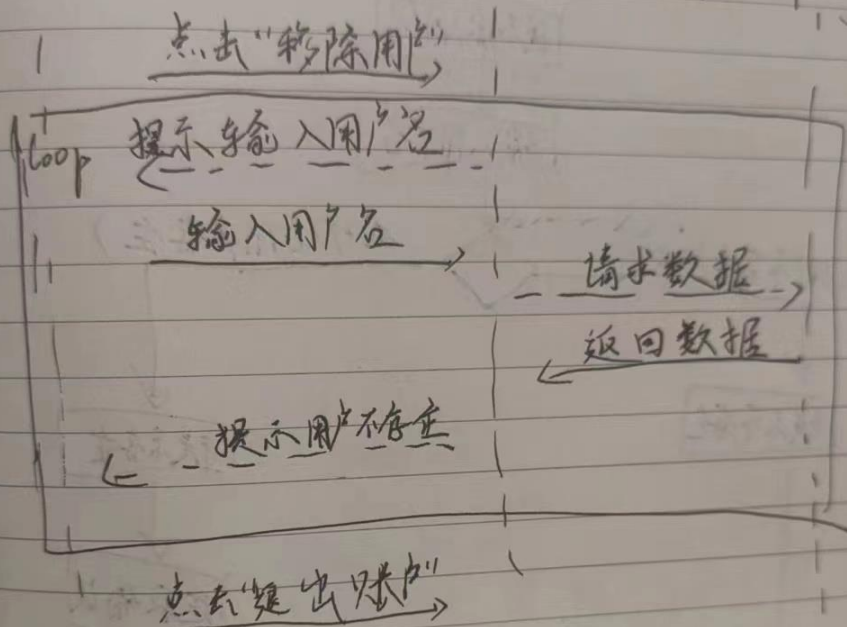 点击"移除用户"
loop
提示输入用户名
输入用户名
请求数据
返回数据
提示用户不存在
点击"退出账户"